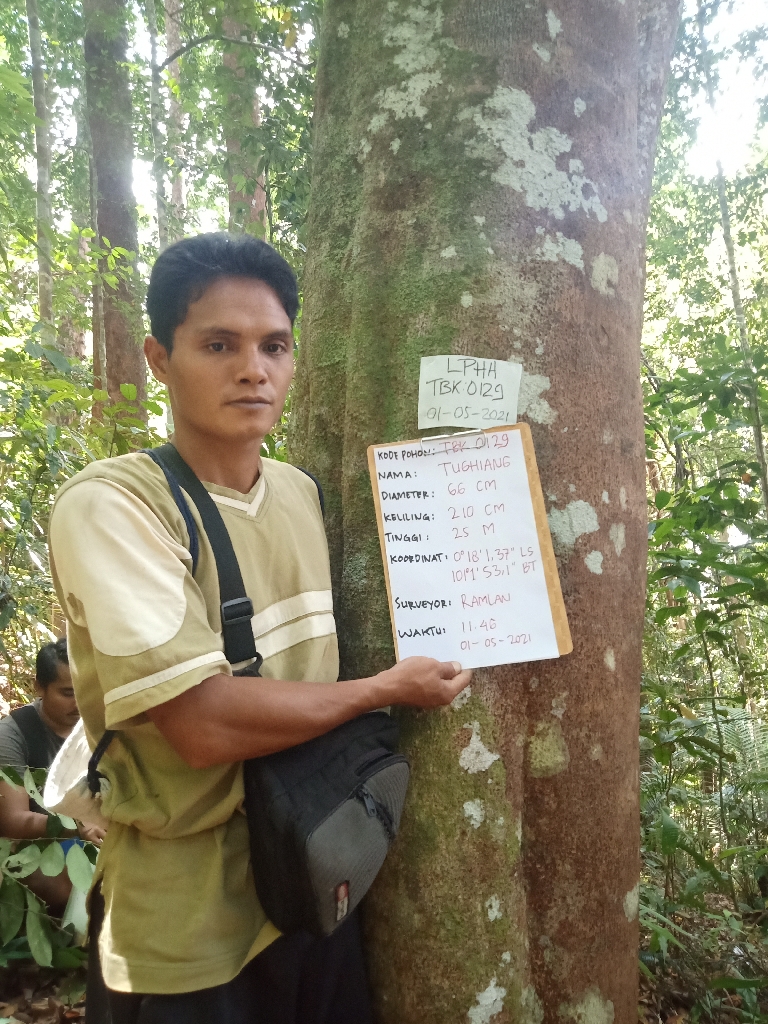 LPHA
TBK 0129
01-05-2021
KODE POHON: TBK 0129
NAMA: TUGHIANG
DIAMETER: 66 CM
KELILING: 210 CM
TINGGI: 25 M
KOORDINAT: 0°18'1.37" LS
101°1'53.1" BT
SURVEYOR: RAMLAN
WAKTU: 11.48
01-05-2021